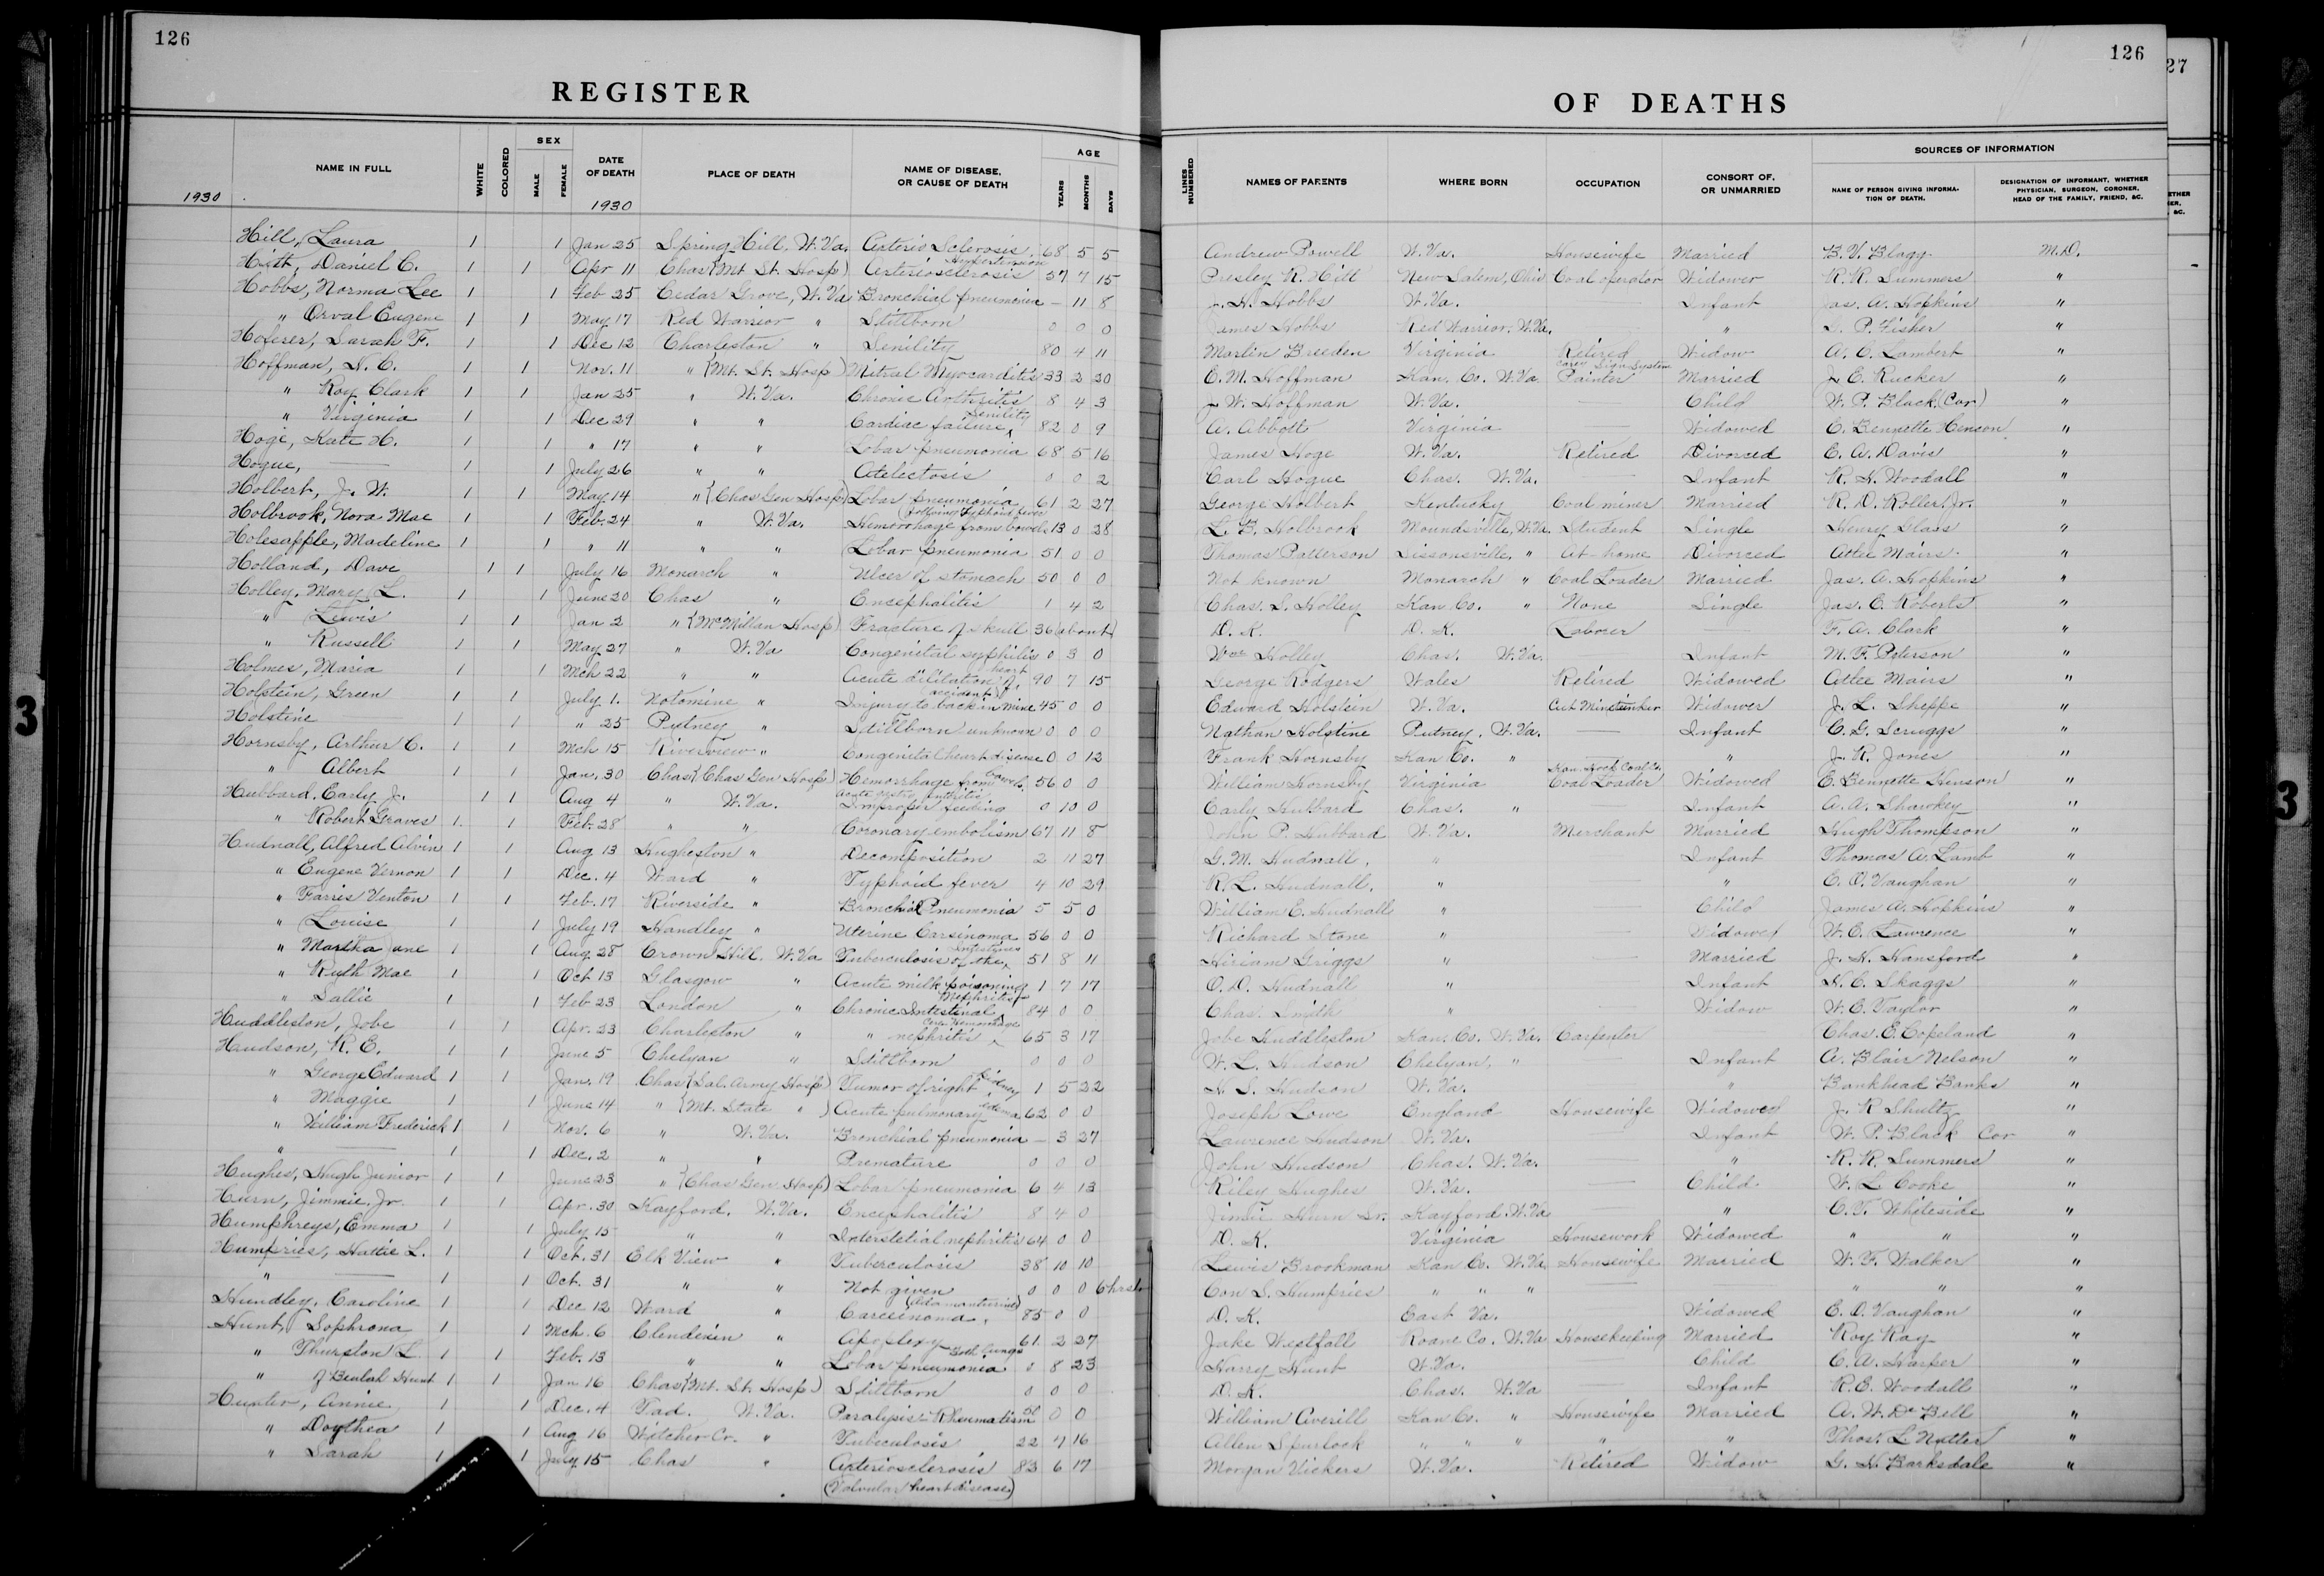 126
REGISTER
1930
NAME IN FULL WHITE COLORED SEX MALE FEMALE DATE OF DEATH 1930 PLACE OF DEATH NAME OF DISEASE, OR CAUSE OF DEATH AGE YEARS MONTHS DAYS
126
27
OF DEATHS
LINES NUMBERED NAMES OF PARENTS WHERE BORN OCCUPATION CONSORT OF, OR UNMARRIED SOURCES OF INFORMATION NAME OF PERSON GIVING INFORMATION OF DEATH. DESIGNATION OF INFORMANT, WHETHER PHYSICIAN, SURGEON, CORONER, HEAD OF THE FAMILY, FRIEND, &C.
Hill, Laura 1 1 Jan 25 Spring Hill, W. Va. Arterio Sclerosis, Hypertension 68 5 5 Andrew Powell W. Va. Housewife Married B. V. Blagg M.D.
Hitt, Daniel C. 1 1 Apr 11 Chas (Mt. St. Hosp) Arteriosclerosis 57 7 15 Presley R. Hitt New Salem, Ohio Coal operator Widower R. R. Summers "
Hobbs, Norma Lee 1 1 Feb 25 Cedar Grove, W. Va Bronchial pneumonia — 11 8 J. H. Hobbs W. Va. — Infant Jas. A. Hopkins "
" Orval Eugene 1 1 May 17 Red Warrior " Stillborn 0 0 0 James Hobbs Red Warrior, W. Va. — " L. P. Fisher "
Hoferer, Sarah F. 1 1 Dec 12 Charleston " Senility 80 4 11 Martin Breeden Virginia Retired Widow A. C. Lambert "
Hoffman, H. C. 1 1 Nov. 11 " (Mt. St. Hosp) Mitral Myocarditis 23 2 20 E. M. Hoffman Kan. Co. W. Va Carey Sign System Painter Married J. E. Rucker "
" Roy Clark 1 1 Jan 25 " W. Va. Chronic Arthritis 8 4 3 J. W. Hoffman W. Va. — Child W. P. Black (Cor) "
" Virginia 1 1 Dec 29 " " Cardiac failure, Senility 82 0 9 A. Abbotts Virginia — Widowed C. Bennette Henson "
Hoge, Kate H. 1 1 " 17 " " Lobar pneumonia 68 5 16 James Hoge W. Va. Retired Divorced E. A. Davis "
Hogue, — 1 1 July 26 " " Atelectosis 0 0 2 Carl Hogue Chas. W. Va. — Infant R. H. Woodall "
Holbert, J. W. 1 1 May 14 " (Chas Gen Hosp) Lobar pneumonia 61 2 27 George Holbert Kentucky Coal miner Married R. D. Roller, Jr. "
Holbrook, Nora Mae 1 1 Feb. 24 " W. Va. (following typhoid fever) Hemorrhage from bowels 13 0 28 L. B. Holbrook Moundsville, W. Va. Student Single Henry Glass "
Holesapple, Madeline 1 1 " 11 " " Lobar pneumonia 51 0 0 Thomas Patterson Sissonsville, " At-home Divorced Atlee Mairs "
Holland, Dave 1 1 July 16 Monarch " Ulcer of stomach 50 0 0 Not known Monarch " Coal Loader Married Jas. A. Hopkins "
Holley, Mary L. 1 1 June 20 Chas " Encephalitis 1 4 2 Chas. S. Holley Kan Co. " None Single Jas. C. Roberts "
" Lewis 1 1 Jan 2 " (McMillan Hosp) Fracture of skull 36 (about) D. K. D. K. Laborer — F. A. Clark "
" Russell 1 1 May 27 " W. Va Congenital syphilis 0 3 0 Wm Holley Chas. W. Va. — Infant M. F. Peterson "
Holmes, Maria 1 1 Mch 22 " " Acute dilitation of heart 90 7 15 George Rodgers Wales Retired Widowed Atlee Mairs "
Holstein, Green 1 1 July 1. Notomine " Injury to back in mine (accident) 45 0 0 Edward Holstein W. Va. Widower J. L. Sheppe "
Holstine 1 1 " 25 Putney " Stillborn unknown 0 0 0 Nathan Holstine Putney, W. Va. — Infant C. G. Scruggs "
Hornsby, Arthur C. 1 1 Mch 15 Riverview " Congenital heart disease 0 0 12 Frank Hornsby Kan Co. " " J. R. Jones "
" Albert 1 1 Jan. 30 Chas (Chas Gen Hosp) Hemorrhage from bowels 56 0 0 William Hornsby Virginia Coal Loader Widowed C. Bennette Henson "
Hubbard, Early J. 1 1 Aug 4 " W. Va. Acute gastro enthritis Improper feeding 0 10 0 Early Hubbard Chas. " Infant A. A. Shawkey "
" Robert Graves 1 1 Feb. 28 " " Coronary embolism 67 11 8 John P. Hubbard W. Va. Merchant Married Hugh Thompson "
Hudnall, Alfred Alvin 1 1 Aug 13 Hugheston " Decomposition 2 11 27 G. M. Hudnall, " Infant Thomas A. Lamb "
" Eugene Vernon 1 1 Dec. 4 Ward " Typhoid fever 4 10 29 R. L. Hudnall, " — " C. O. Vaughan "
" Farris Venton 1 1 Feb. 17 Riverside " Bronchial Pneumonia 5 5 0 William E. Hudnall " — Child James A. Hopkins "
" Louise 1 1 July 19 Handley " Uterine Carsinoma 56 0 0 Richard Stone " — Widowed W. C. Lawrence "
" Martha Jane 1 1 Aug. 28 Crown Hill, W. Va Tuberculosis of the Intestines 51 8 11 Hiriam Griggs " Married J. H. Hansford "
" Ruth Mae 1 1 Oct 13 Glasgow " Acute milk poisoning 1 7 17 O. D. Hudnall " — Infant H. C. Skaggs "
" Sallie 1 1 Feb 23 London " Chronic Intestinal Nephritis 84 0 0 Chas. Smith " — Widow W. C. Taylor "
Huddleston, Jobe 1 1 Apr. 23 Charleston " " nephritis Cer. Hemorrhage 65 3 17 Jobe Huddleston Kan. Co. W. Va. Carpenter Chas. E. Copeland "
Hudson, R. E. 1 1 June 5 Chelyan " Stillborn 0 0 0 W. L. Hudson Chelyan, " — Infant A. Blair Nelson "
" George Edward 1 1 Jan. 19 Chas (Sal. Army Hosp) Tumor of right kidney 1 5 22 H. S. Hudson W. Va. " Bankhead Banks "
" Maggie 1 1 June 14 " (Mt. State " ) Acute pulmonary edema 62 0 0 Joseph Lowe England Housewife Widowed J. R. Shultz "
" William Frederick 1 1 Nov. 6 " W. Va. Bronchial pneumonia — 3 27 Lawrence Hudson W. Va. — Infant W. P. Black Cor "
" — 1 1 Dec. 2 " " Premature 0 0 0 John Hudson Chas. W. Va. — " R. R. Summers "
Hughes, Hugh Junior 1 1 June 23 " (Chas Gen. Hosp) Lobar pneumonia 6 4 13 Riley Hughes W. Va. — Child W. L. Cooke "
Hurn, Jimmie, Jr. 1 1 Apr. 30 Kayford, W. Va. Encephalitis 8 4 0 Jimie Hurn Sr. Kayford, W. Va — " C. T. Whiteside "
Humphreys, Emma 1 1 July 15 " " Interstetial nephritis 64 0 0 D. K. Virginia Housework Widowed " " "
Humpries, Hattie L. 1 1 Oct. 31 Elk View " Tuberculosis 38 10 10 Lewis Brookman Kan Co. W. Va Housewife Married W. F. Walker "
" — 1 1 Oct. 31 " " Not given 0 0 0 6 hrs Con S. Humpries " " " — " " "
Hundley, Caroline 1 1 Dec 12 Ward " Carcinoma, 85 0 0 D. K. East Va. Widowed C. O. Vaughan "
Hunt, Sophrona 1 1 Mch. 6 Clendenin " Apoplexy 61 2 27 Jake Westfall Roane Co. W. Va Housekeeping Married Roy Kay "
" Thurston L. 1 1 Feb. 13 " " Lobar pneumonia Both lungs 2 8 23 Harry Hunt W. Va. Child C. A. Harper "
" of Beulah Hunt 1 1 Jan 16 Chas (Mt. St. Hosp) Stillborn 0 0 0 D. K. Chas. W. Va Infant R. E. Woodall "
Hunter, Annie 1 1 Dec. 4 Tad. W. Va. Paralysis-Rheumatism 50 0 0 William Averill Kan Co. " Housewife Married A. W. De Bell "
" Doythea 1 1 Aug 16 Witcher Cr. " Tubeculosis 22 7 16 Allen Spurlock " " " " " Thos. L. Nutter "
" Sarah 1 1 July 15 Chas " Arteriosclerosis 83 6 17 Morgan Vickers W. Va. Retired Widow G. H. Barksdale "
(Valvular heart disease)
3
3